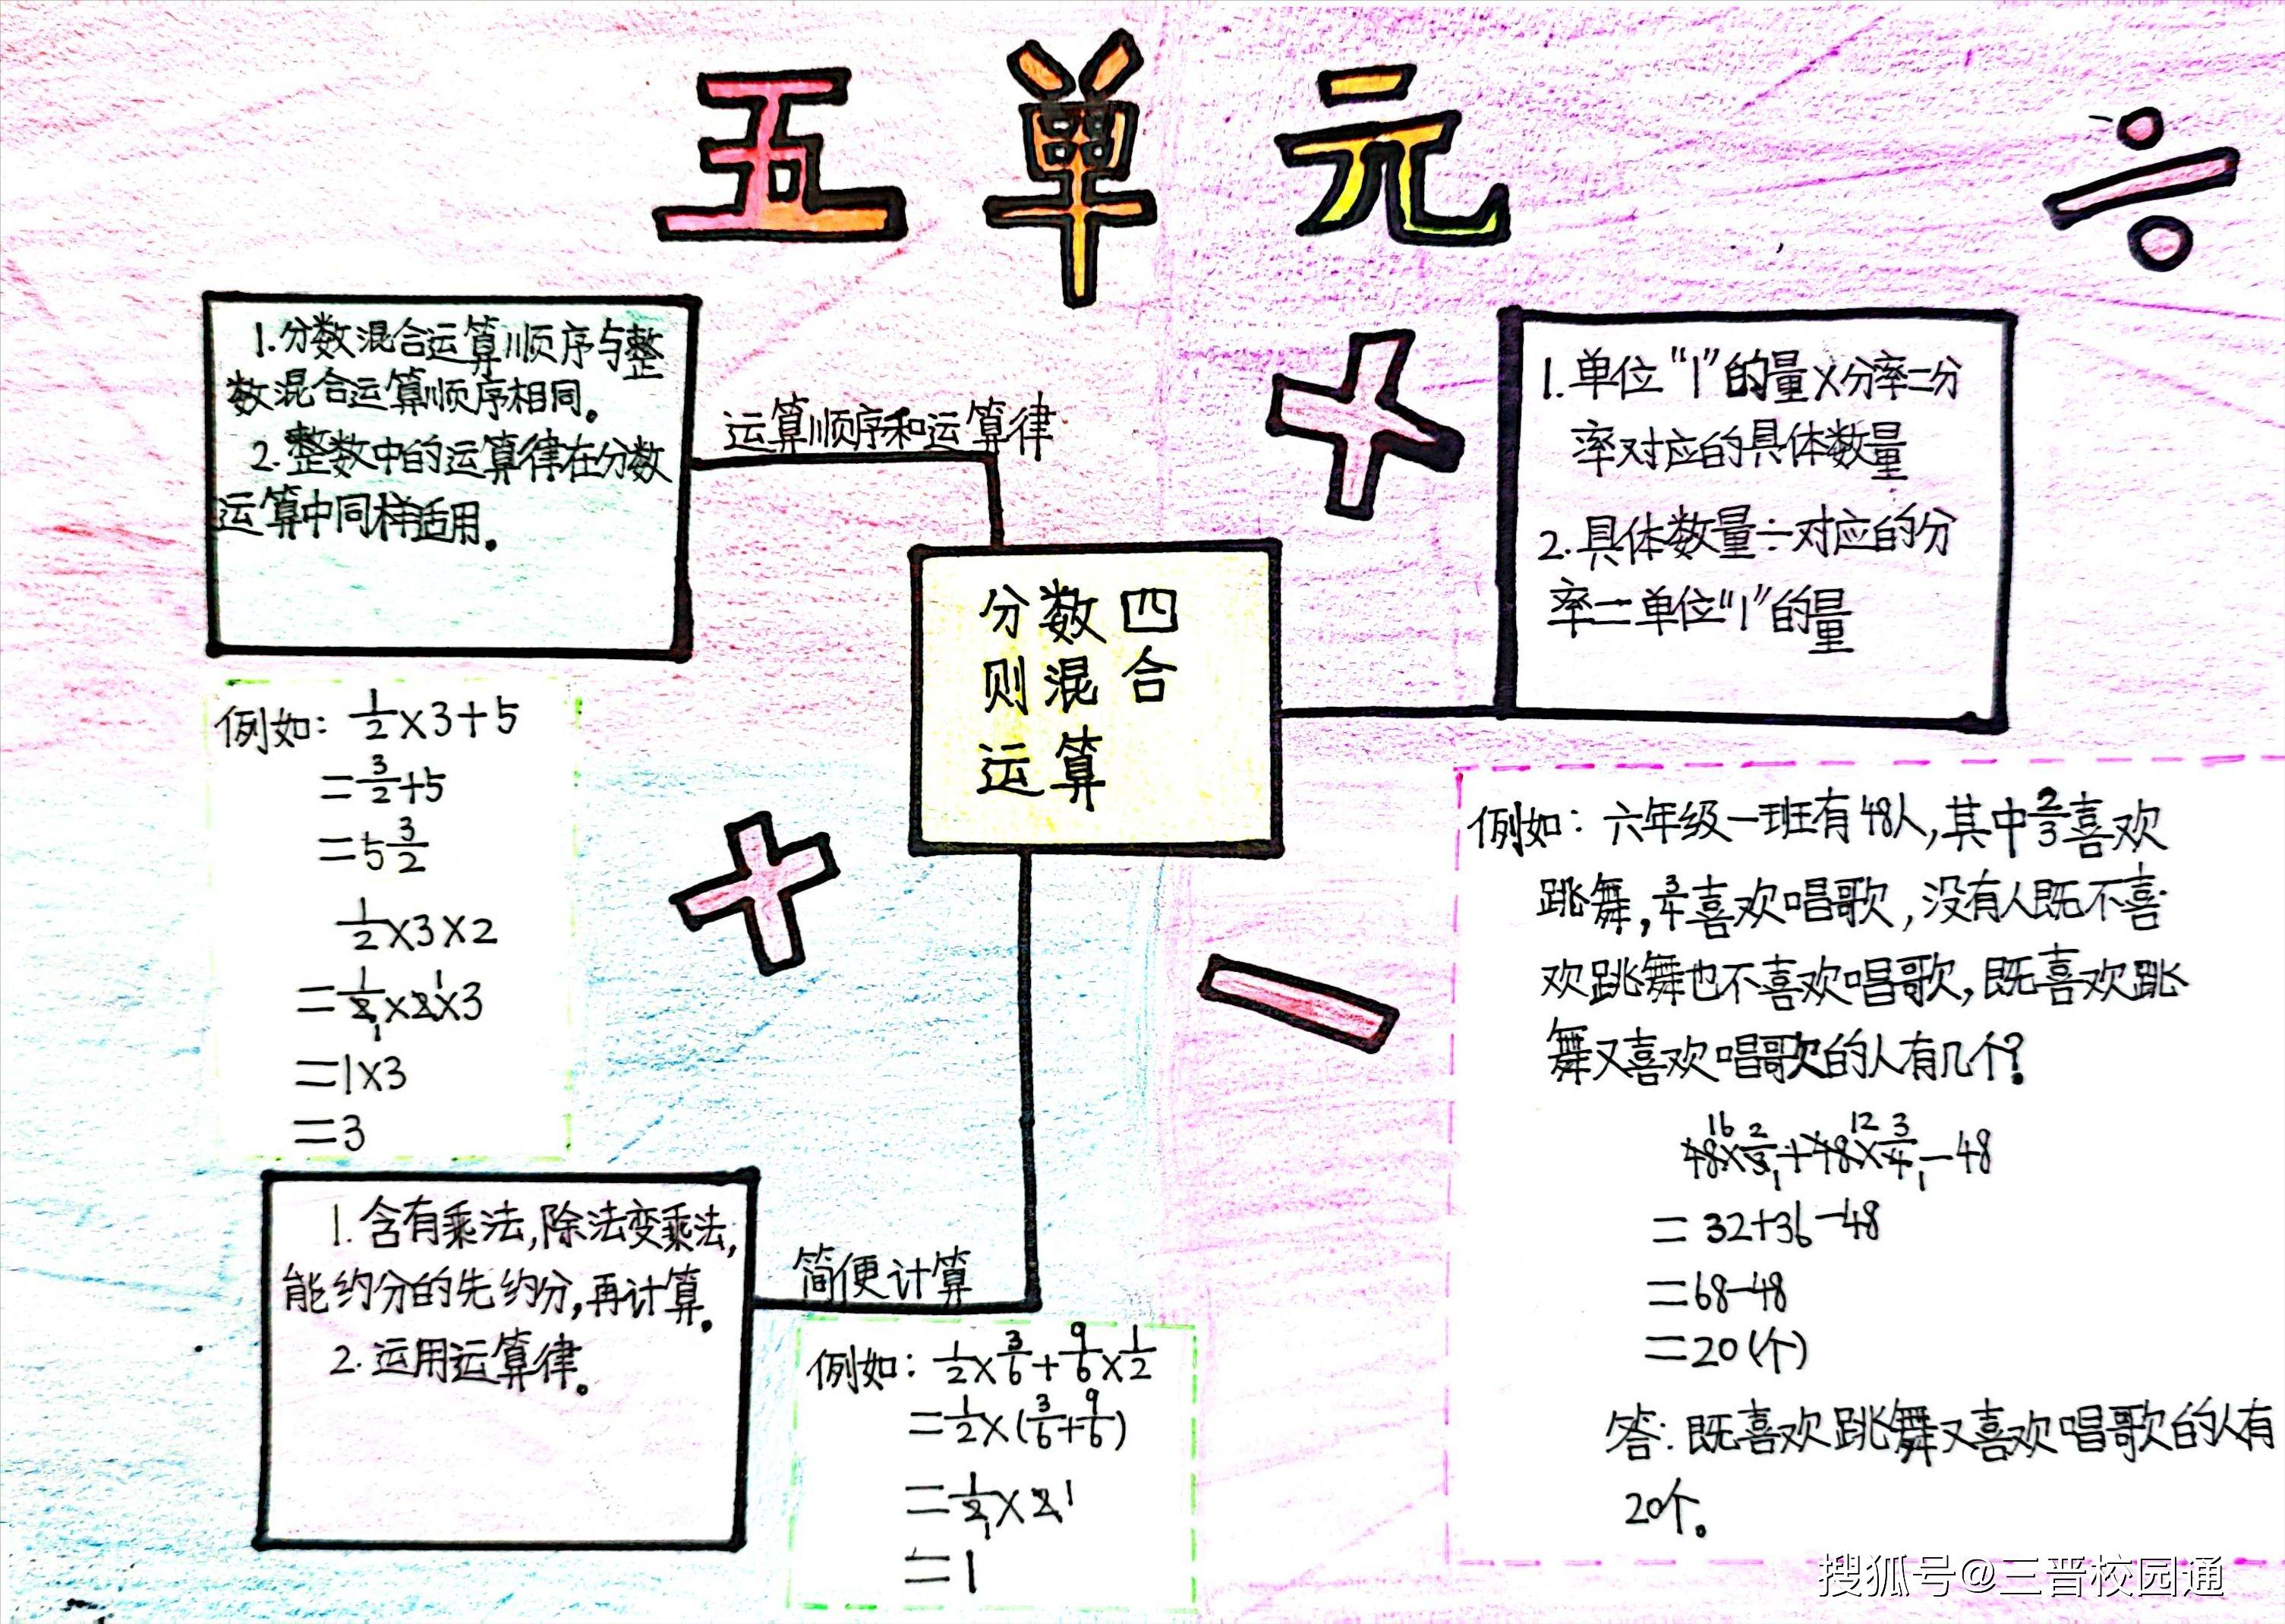 五单元
1.分数混合运算顺序与整
数混合运算顺序相同。
2.整数中的运算律在分数
运算中同样适用。
运算顺序和运算律
例如：1/2×3+5
=3/2+5
=5 3/2
1/2×3×2
=1/2×2×3
=1×3
=3
分数四
则混合
运算
1.单位“1”的量×分率=分
率对应的具体数量
2.具体数量÷对应的分
率=单位“1”的量
例如：六年级一班有48人,其中2/3喜欢
跳舞,3/4喜欢唱歌,没有人既不喜
欢跳舞也不喜欢唱歌,既喜欢跳
舞又喜欢唱歌的人有几个?
48×2/3+48×3/4-48
=32+36-48
=68-48
=20(个)
答:既喜欢跳舞又喜欢唱歌的人有
20个。
1.含有乘法,除法变乘法,
能约分的先约分,再计算。
2.运用运算律。
简便计算
例如：1/2×3/6+9/6×1/2
=1/2×(3/6+9/6)
=1/2×2
=1
搜狐号@三晋校园通